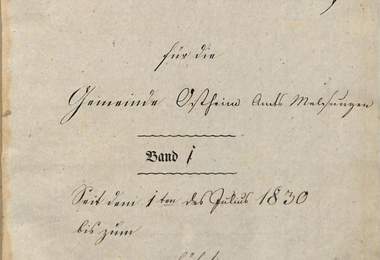 für die
Gemeinde Ostheim Amts Melsungen
Band 1
Seit dem 1ten des Julius 1830
bis zum